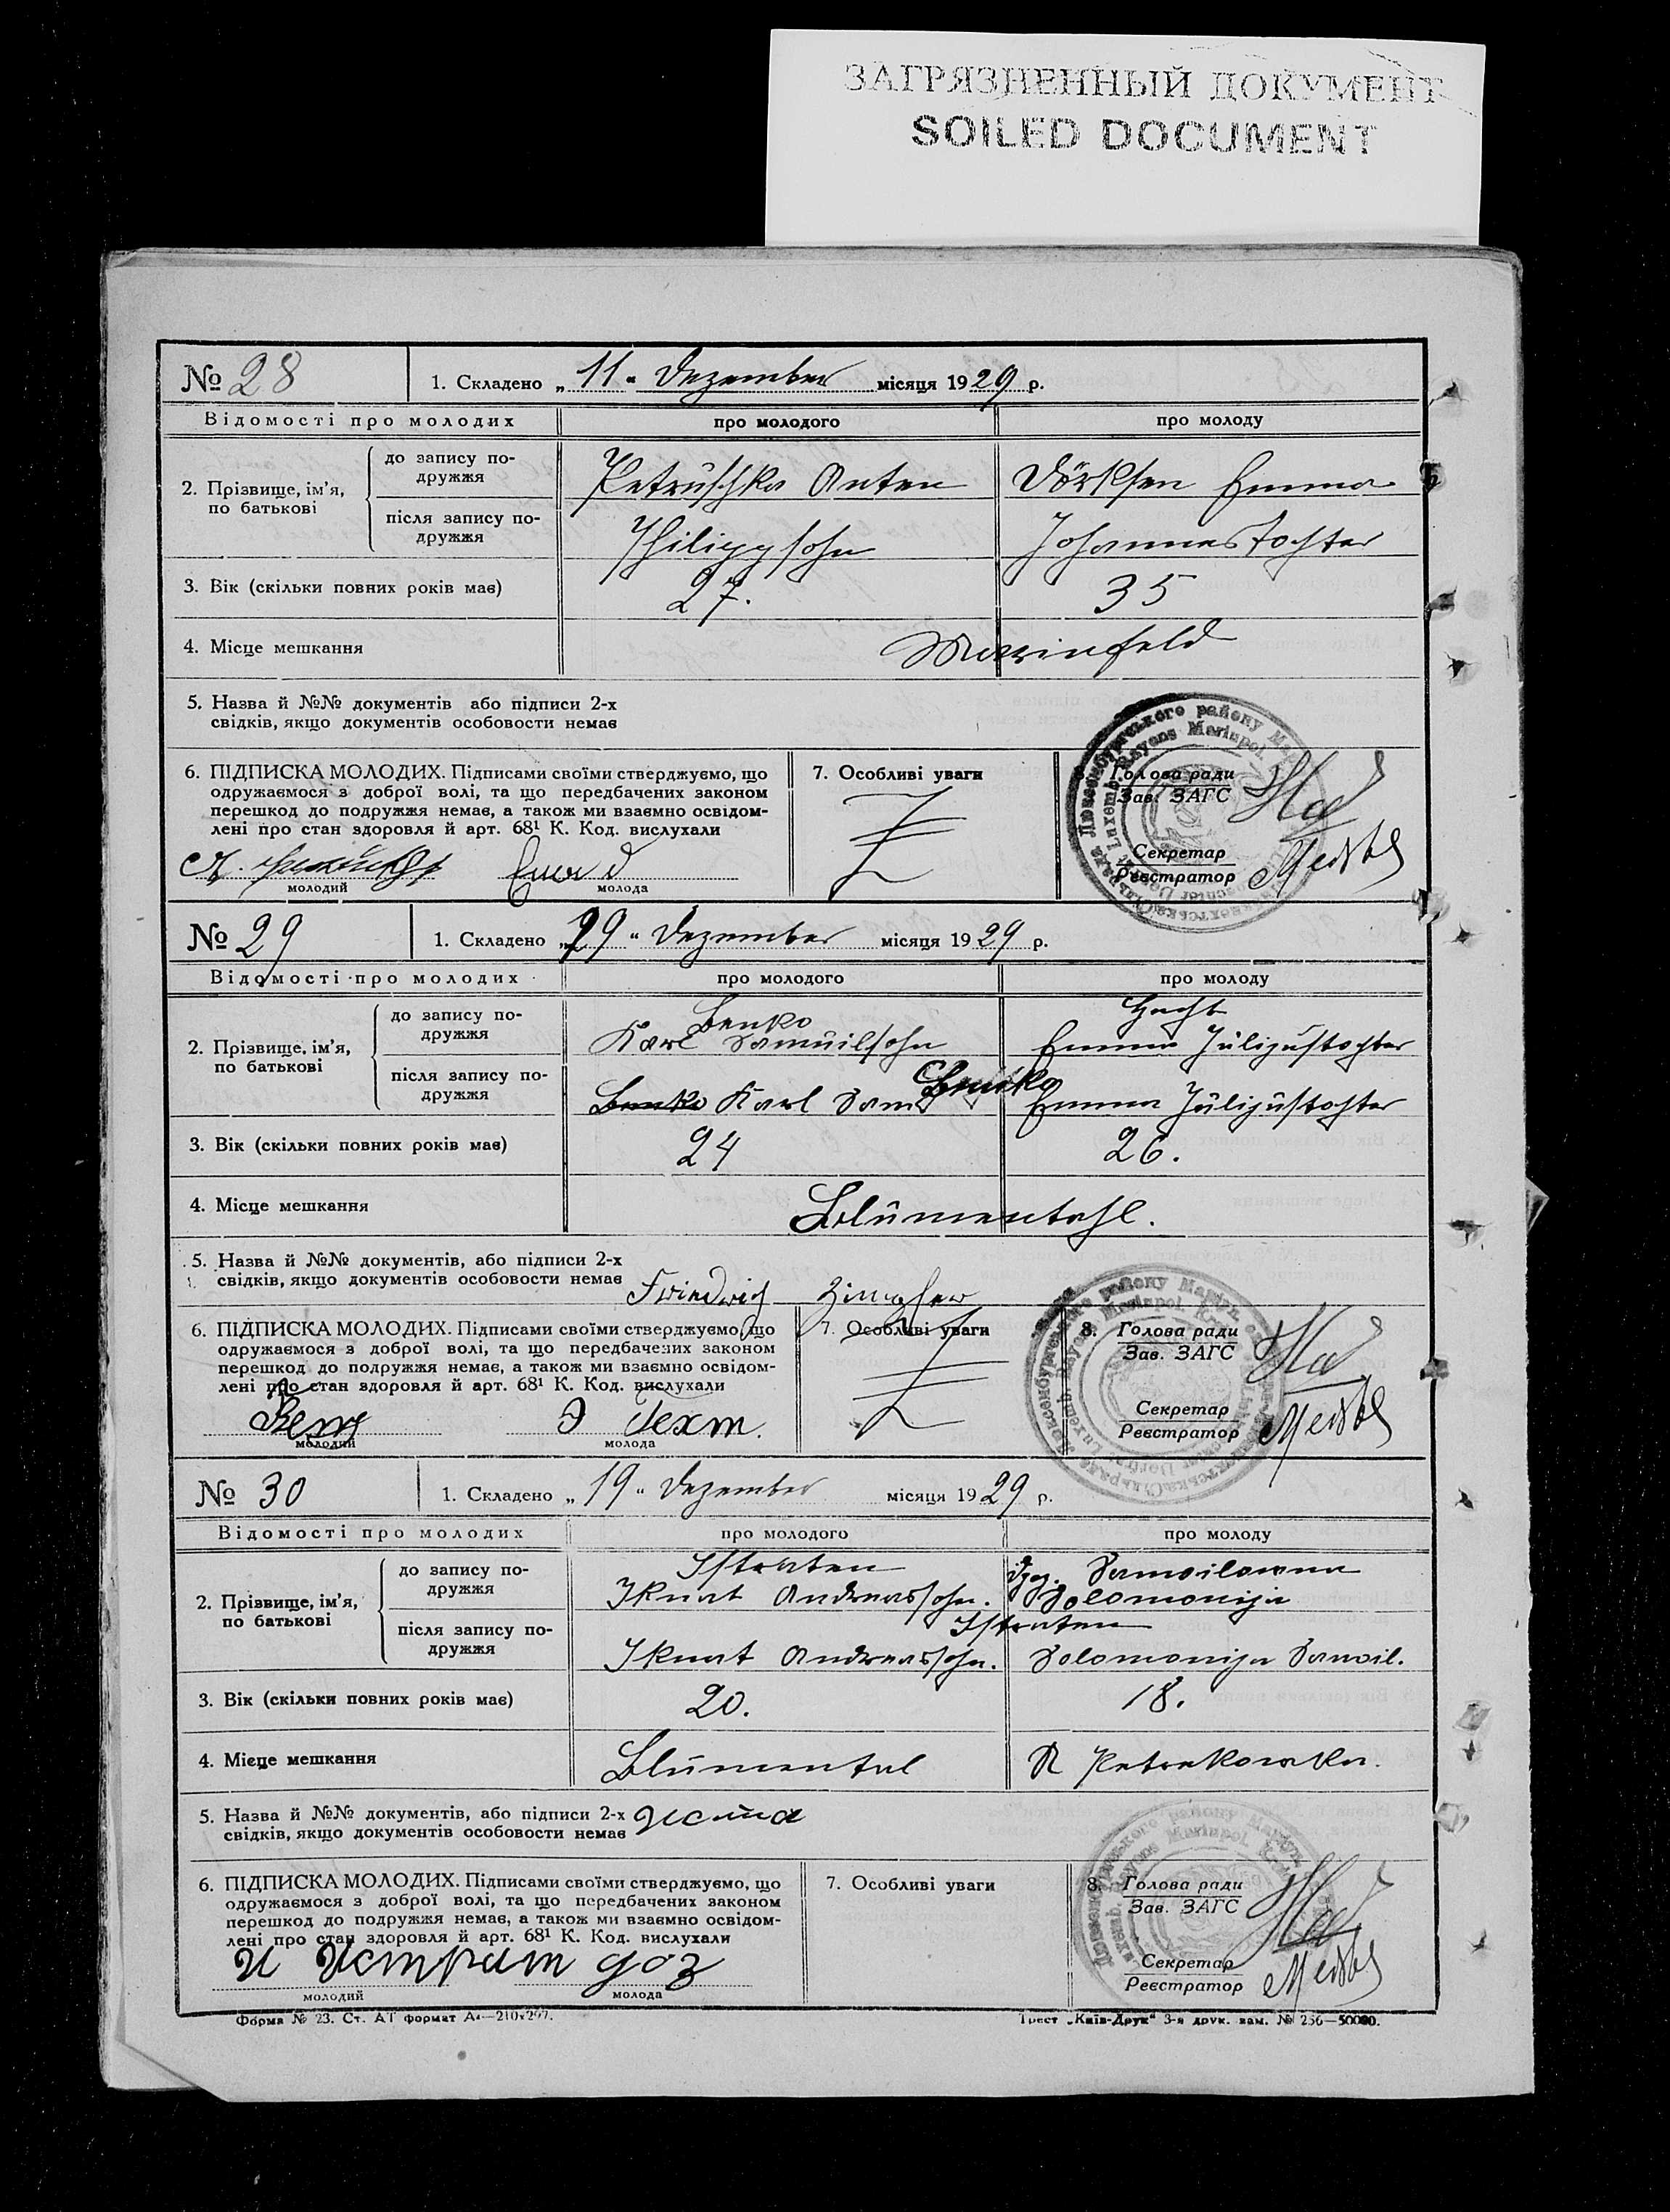 ЗАГРЯЗНЕННЫЙ ДОКУМЕНТ
SOILED DOCUMENT
№ 28
1. Складено „ 11 " Dezember місяця 1929 р.
Відомості про молодих
про молодого
про молоду
2. Прізвище, ім'я, по батькові
до запису подружжя
Petruschka Anten
Dörksen Emma
після запису подружжя
Philippsohn
Johannestochter
3. Вік (скільки повних років має)
27.
35
4. Місце мешкання
Marinfeld
5. Назва й №№ документів або підписи 2-х
свідків, якщо документів особовости немає
6. ПІДПИСКА МОЛОДИХ. Підписами своїми стверджуємо, що
одружаємося з доброї волі, та що передбачених законом
перешкод до подружжя немає, а також ми взаємно освідом-
лені про стан здоровля й арт. 68¹ К. Код. вислухали
молодий
молода
7. Особливі уваги
8. Голова ради
Зав. ЗАГС
Секретар
Реєстратор
№ 29
1. Складено „ 19 " Dezember місяця 1929 р.
Відомості про молодих
про молодого
про молоду
2. Прізвище, ім'я, по батькові
до запису подружжя
Benko
Karl Samuilsohn
Hecht
Emma Julijustochter
після запису подружжя
Benko
Benko Karl Sam
Emma Julijustochter
3. Вік (скільки повних років має)
24
26.
4. Місце мешкання
Blumentahl.
5. Назва й №№ документів, або підписи 2-х
свідків, якщо документів особовости немає
Friedrich
6. ПІДПИСКА МОЛОДИХ. Підписами своїми стверджуємо, що
одружаємося з доброї волі, та що передбачених законом
перешкод до подружжя немає, а також ми взаємно освідом-
лені про стан здоровля й арт. 68¹ К. Код. вислухали
Э Гехт.
молодий
молода
7. Особливі уваги
8. Голова ради
Зав. ЗАГС
Секретар
Реєстратор
№ 30
1. Складено „ 19 " Dezember місяця 1929 р.
Відомості про молодих
про молодого
про молоду
2. Прізвище, ім'я, по батькові
до запису подружжя
Istraten
Iknat Andreassohn.
Samoilowna
Solomonija
після запису подружжя
Istraten
Iknat Andreassohn.
Solomonija Samoil.
3. Вік (скільки повних років має)
20.
18.
4. Місце мешкання
Blumental
N Petrekowka.
5. Назва й №№ документів, або підписи 2-х
свідків, якщо документів особовости немає
6. ПІДПИСКА МОЛОДИХ. Підписами своїми стверджуємо, що
одружаємося з доброї волі, та що передбачених законом
перешкод до подружжя немає, а також ми взаємно освідом-
лені про стан здоровля й арт. 68¹ К. Код. вислухали
И Истрат доз
молодий
молода
7. Особливі уваги
8. Голова ради
Зав. ЗАГС
Секретар
Реєстратор
Форма № 23. Ст. АТ формат А4—210x297.
Трест „Київ-Друк" 3-я друк. зам. № 256—50000.